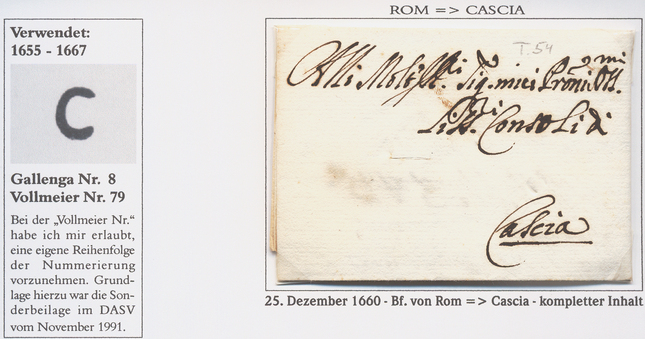 ROM => CASCIA
Verwendet:
1655 - 1667
C
Gallenga Nr. 8
Vollmeier Nr. 79
Bei der „Vollmeier Nr.“
habe ich mir erlaubt,
eine eigene Reihenfolge
der Nummerierung
vorzunehmen. Grund-
lage hierzu war die Son-
derbeilage im DASV
vom November 1991.
T. 54
Alli Molt
Consoli di
Cascia
25. Dezember 1660 - Bf. von Rom => Cascia - kompletter Inhalt